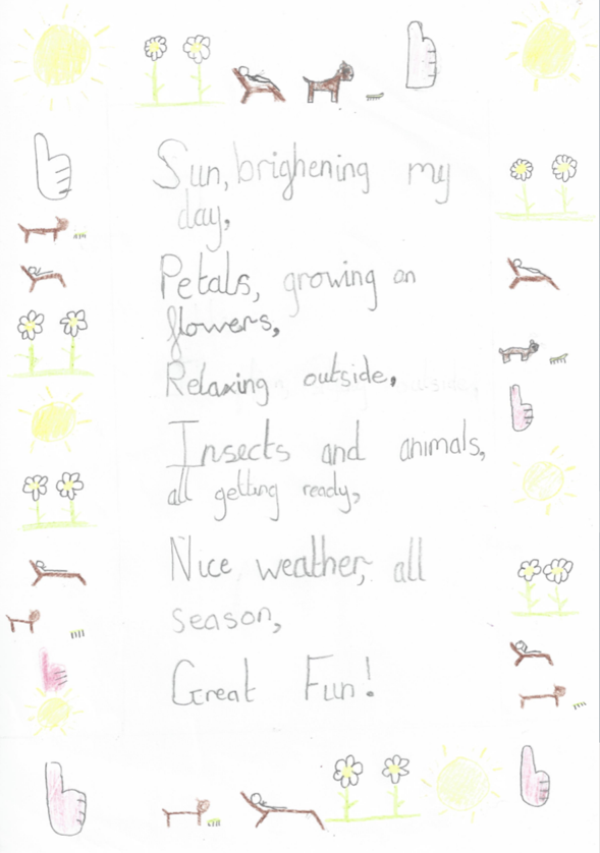 Sun, brighening my
day,
Petals, growing on
flowers,
Relaxing outside,
Insects and animals,
all getting ready,
Nice weather, all
season,
Great Fun!